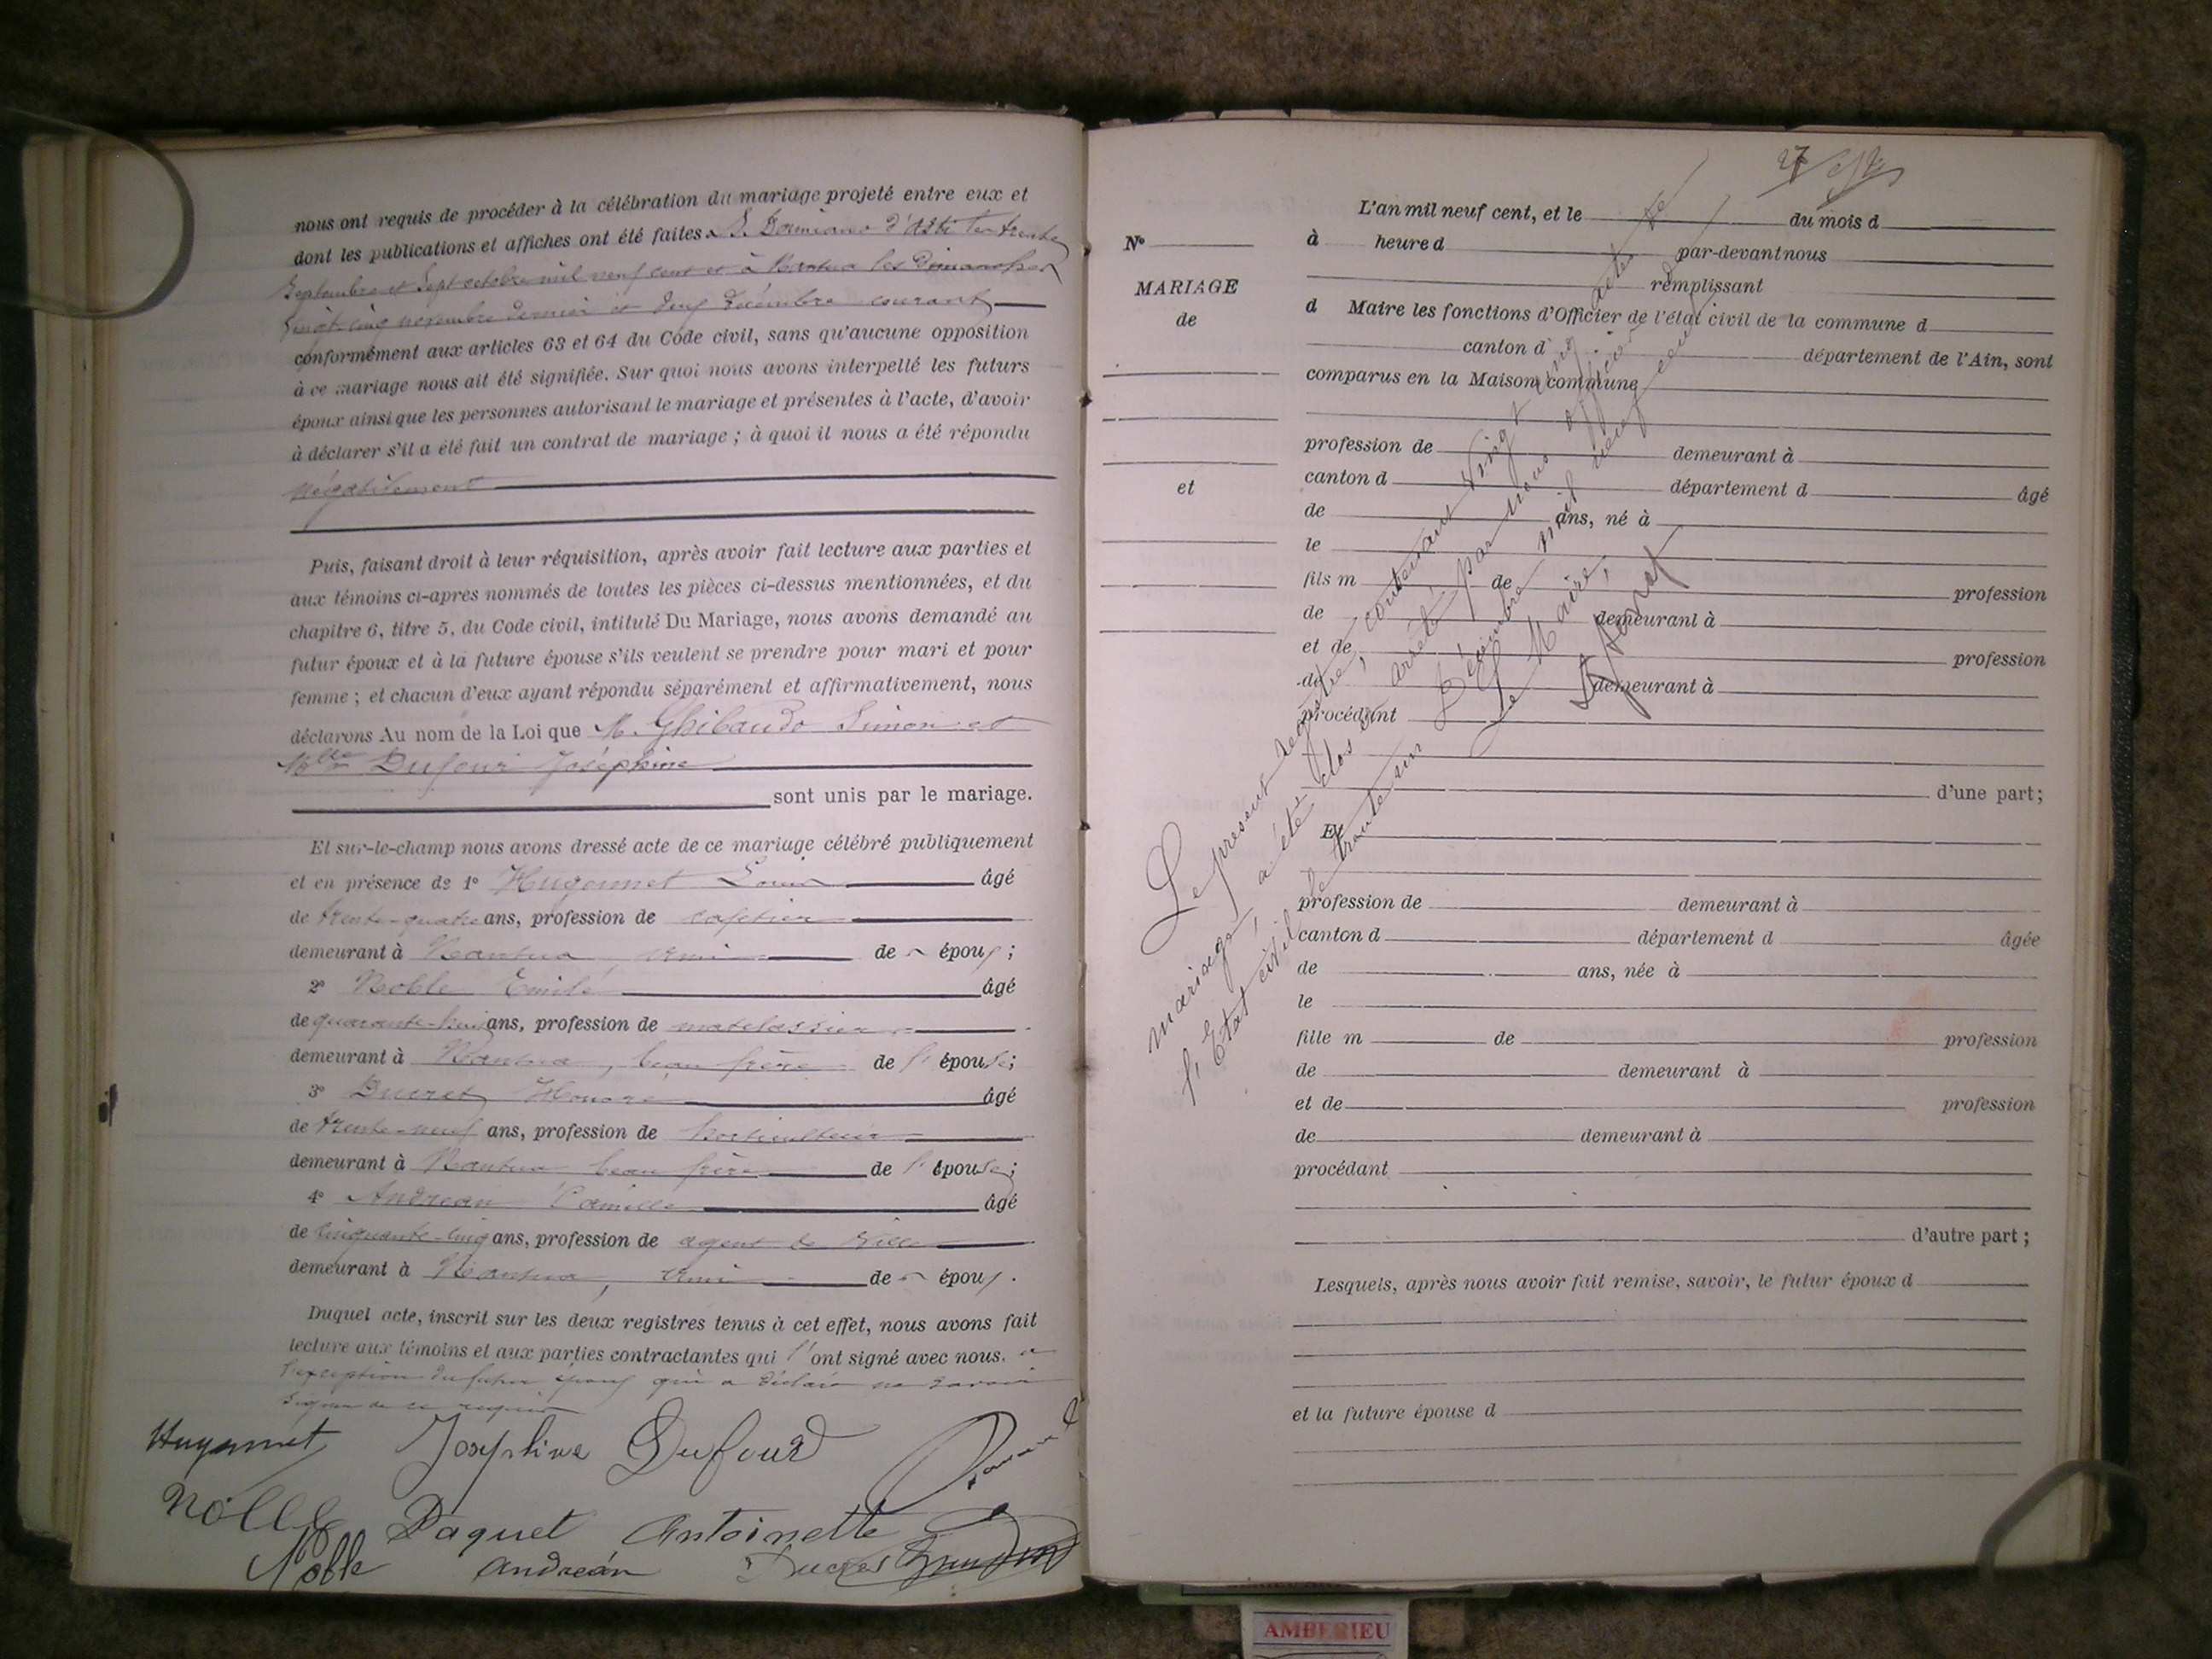 nous ont requis de procéder à la célébration du mariage projeté entre eux et
dont les publications et affiches ont été faites à S. Damiano d'Asti les trente
Septembre et Sept octobre mil neuf cent et à Nantua les Dimanches
Vingt-cinq novembre dernier et deux décembre courant
conformément aux articles 63 et 64 du Code civil, sans qu'aucune opposition
à ce mariage nous ait été signifiée. Sur quoi nous avons interpellé les futurs
époux ainsi que les personnes autorisant le mariage et présentes à l'acte, d'avoir
à déclarer s'il a été fait un contrat de mariage ; à quoi il nous a été répondu
négativement
Puis, faisant droit à leur réquisition, après avoir fait lecture aux parties et
aux témoins ci-après nommés de toutes les pièces ci-dessus mentionnées, et du
chapitre 6, titre 5, du Code civil, intitulé Du Mariage, nous avons demandé au
futur époux et à la future épouse s'ils veulent se prendre pour mari et pour
femme ; et chacun d'eux ayant répondu séparément et affirmativement, nous
déclarons Au nom de la Loi que M. Ghibaudo Simon et
Mlle Dufour Joséphine
sont unis par le mariage.
Et sur-le-champ nous avons dressé acte de ce mariage célébré publiquement
et en présence de 1° Hugonnet Louis âgé
de trente-quatre ans, profession de cafetier
demeurant à Nantua, ami de époux ;
2° Noble Emile âgé
de quarante-huit ans, profession de matelassier
demeurant à Nantua, beau frère de l'épouse ;
3° Ducret Honoré âgé
de trente-neuf ans, profession de horticulteur
demeurant à Nantua beau frère de l'épouse ;
4° Andréan Camille âgé
de cinquante-cinq ans, profession de agent de ville
demeurant à Nantua, ami de époux.
Duquel acte, inscrit sur les deux registres tenus à cet effet, nous avons fait
lecture aux témoins et aux parties contractantes qui l'ont signé avec nous. à
l'exception du futur époux qui a déclaré ne savoir
signer de ce requis
Hugonnet Joséphine Dufour
Noble Paquet Antoinette
Noble Andréan Ducret
27
L'an mil neuf cent, et le du mois d
N° à heure d par-devant nous
remplissant
MARIAGE d Maire les fonctions d'Officier de l'état civil de la commune d
de canton d département de l'Ain, sont
comparus en la Maison commune
profession de demeurant à
et canton d département d âgé
de ans, né à
le
fils m de profession
de demeurant à
et de profession
de demeurant à
procédant
d'une part ;
Et
profession de demeurant à
canton d département d âgée
de ans, née à
le
fille m de profession
de demeurant à
et de profession
de demeurant à
procédant
d'autre part ;
Lesquels, après nous avoir fait remise, savoir, le futur époux d
et la future épouse d
Le présent registre, contenant vingt cinq actes de
mariage, a été clos et arrêté par nous officier de
l'Etat civil le trente un Décembre mil neuf cent
Le Maire,
AMBERIEU